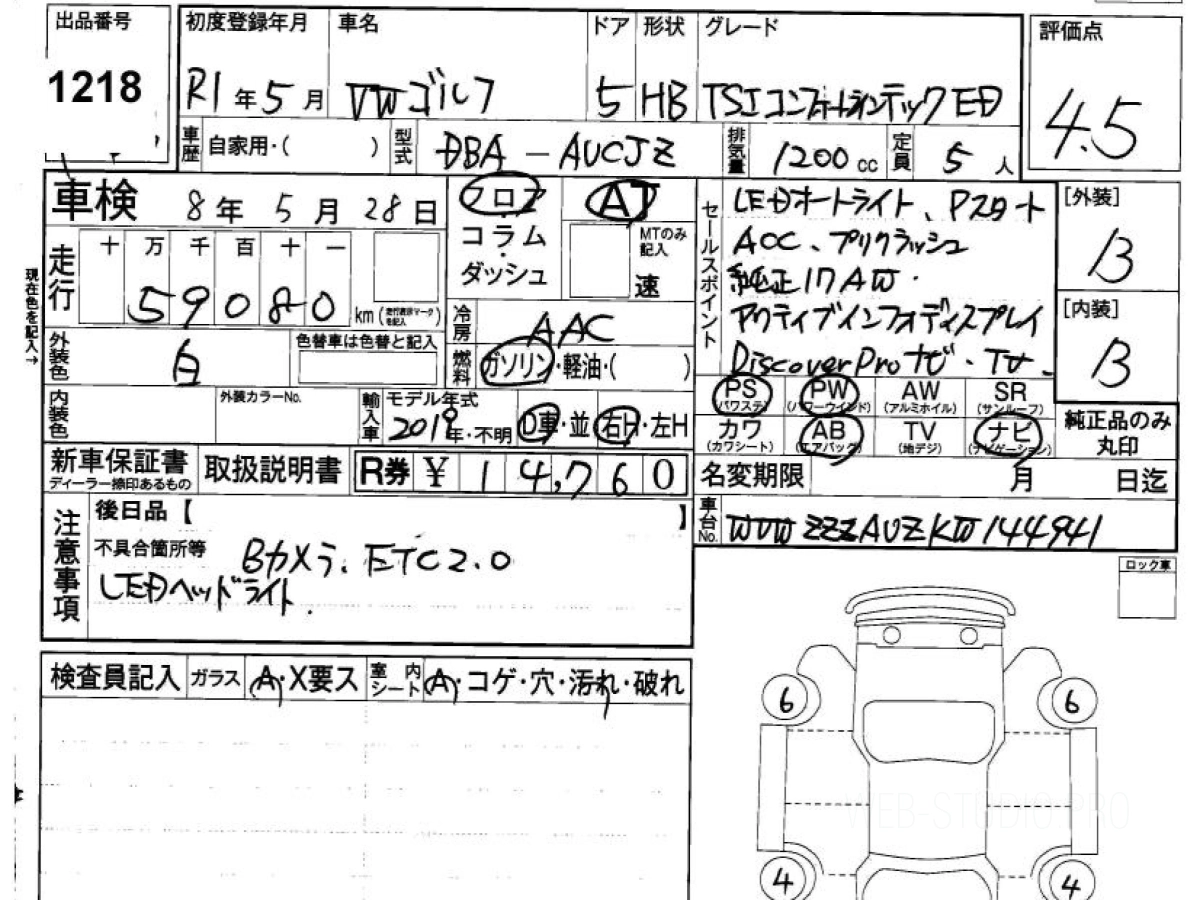 出品番号
1218
初度登録年月
R1年5月
車名
VWゴルフ
ドア
5
形状
HB
グレード
TSIコンフォートラインテックED
評価点
4.5
車歴 自家用・( )
型式 DBA-AUCJZ
排気量 1200cc
定員 5人
車検 8年5月28日
フロア
コラム
ダッシュ
AT
MTのみ記入
速
セールスポイント
LEDオートライト、Pスタート
ACC、プリクラッシュ
純正17AW.
アクティブインフォディスプレイ
Discover Proナビ・TV.
[外装]
B
[内装]
B
現在色を記入→
走行
十 万 千 百 十 一
59080
km(走行表示マークを記入)
冷房 AAC
外装色 白
色替車は色替と記入
燃料 ガソリン・軽油・( )
内装色
外装カラーNo.
輸入車
モデル年式
2019年・不明
D車・並
右H・左H
PS(パワステ) PW(パワーウインド) AW(アルミホイル) SR(サンルーフ)
カワ(カワシート) AB(エアバック) TV(地デジ) ナビ(ナビゲーション)
純正品のみ丸印
新車保証書
ディーラー捺印あるもの
取扱説明書
R券 ¥ 14,760
名変期限 月 日迄
車台No. WVWZZZAUZKW144941
注意事項
後日品【 】
不具合箇所等 Bカメラ、ETC2.0
LEDヘッドライト.
ロック車
検査員記入 ガラス A・X要ス 室内シート A・コゲ・穴・汚れ・破れ
6 6
WEB-STUDIO.PRO
4 4